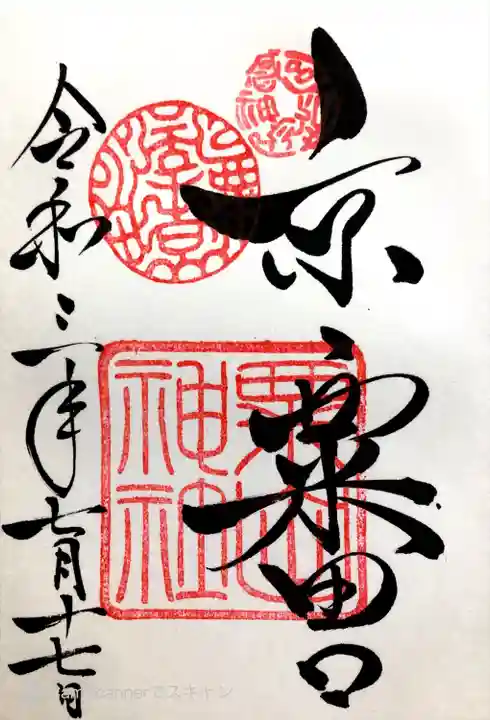 京 粟田口
粟田神社
感神院
令和三年七月十七日
CamScannerでスキャン